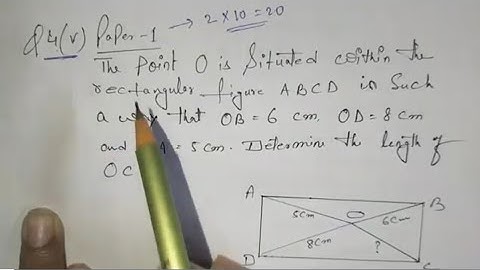 Q4(v) Paper-1 → 2×10=20
The point O is situated within the
rectangular figure ABCD in such
a that OB = 6 cm, OD = 8 cm
and = 5 cm. Determine the length of
OC
A
B
5cm
6cm
8cm
?
D
C